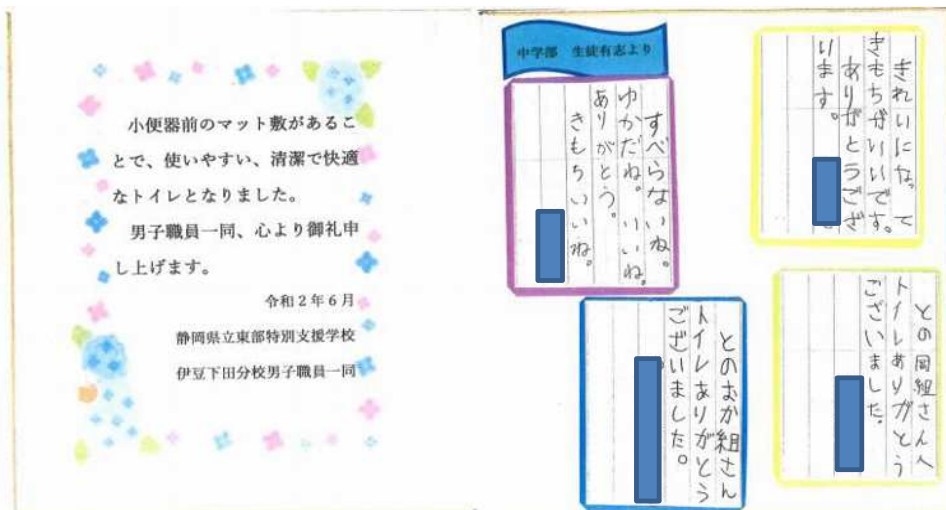 小便器前のマット敷があるこ
とで、使いやすい、清潔で快適
なトイレとなりました。
男子職員一同、心より御礼申
し上げます。
令和2年6月
静岡県立東部特別支援学校
伊豆下田分校男子職員一同
中学部　生徒有志より
すべらないね。
ゆかだね。いいね。
ありがとう。
きもちいいね。
きれいになって
きもちがいいです。
ありがとうござ
います。
とのおか組さん
トイレありがとう
ございました。
との岡組さんへ
トイレありがとう
ございました。